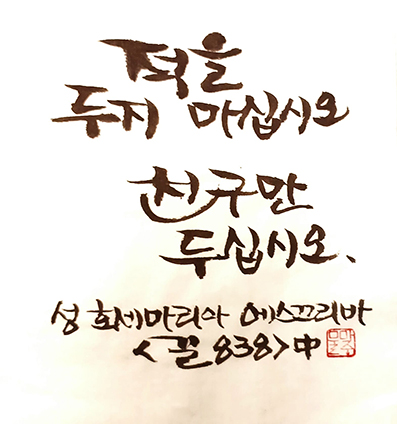 적을
두지 마십시오
친구만
두십시오.
성 호세마리아 에스끄리바
<끌 838> 中